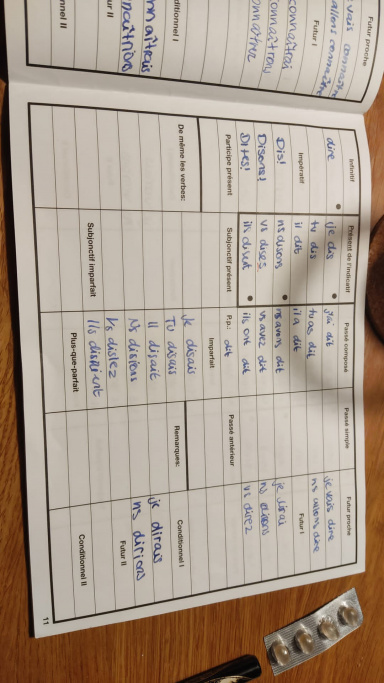 Futur proche
vais connaître
allons connaître
Futur I
connaîtrai
connaîtrons
connaîtrez
ditionnel I
Infinitif
Présent de l'indicatif
Passé composé
Passé simple
Futur proche
dire
je dis
j'ai dit
je vais dire
tu dis
tu as dit
Impératif
il dit
il a dit
Futur I
Dis!
ns disons
ns avons dit
je dirai
Disons!
vs dises
vs avez dit
ns dirons
Dites!
ils disent
ils ont dit
vs direz
Participe présent
Subjonctif présent
P.p.: dit
Passé antérieur
Imparfait
De même les verbes:
Je disais
Remarques:
Conditionnel I
Tu disais
Il disait
je dirais
Ns disions
ns dirions
Vs disiez
Futur II
Subjonctif imparfait
Ils disaient
Plus-que-parfait
Conditionnel II
11